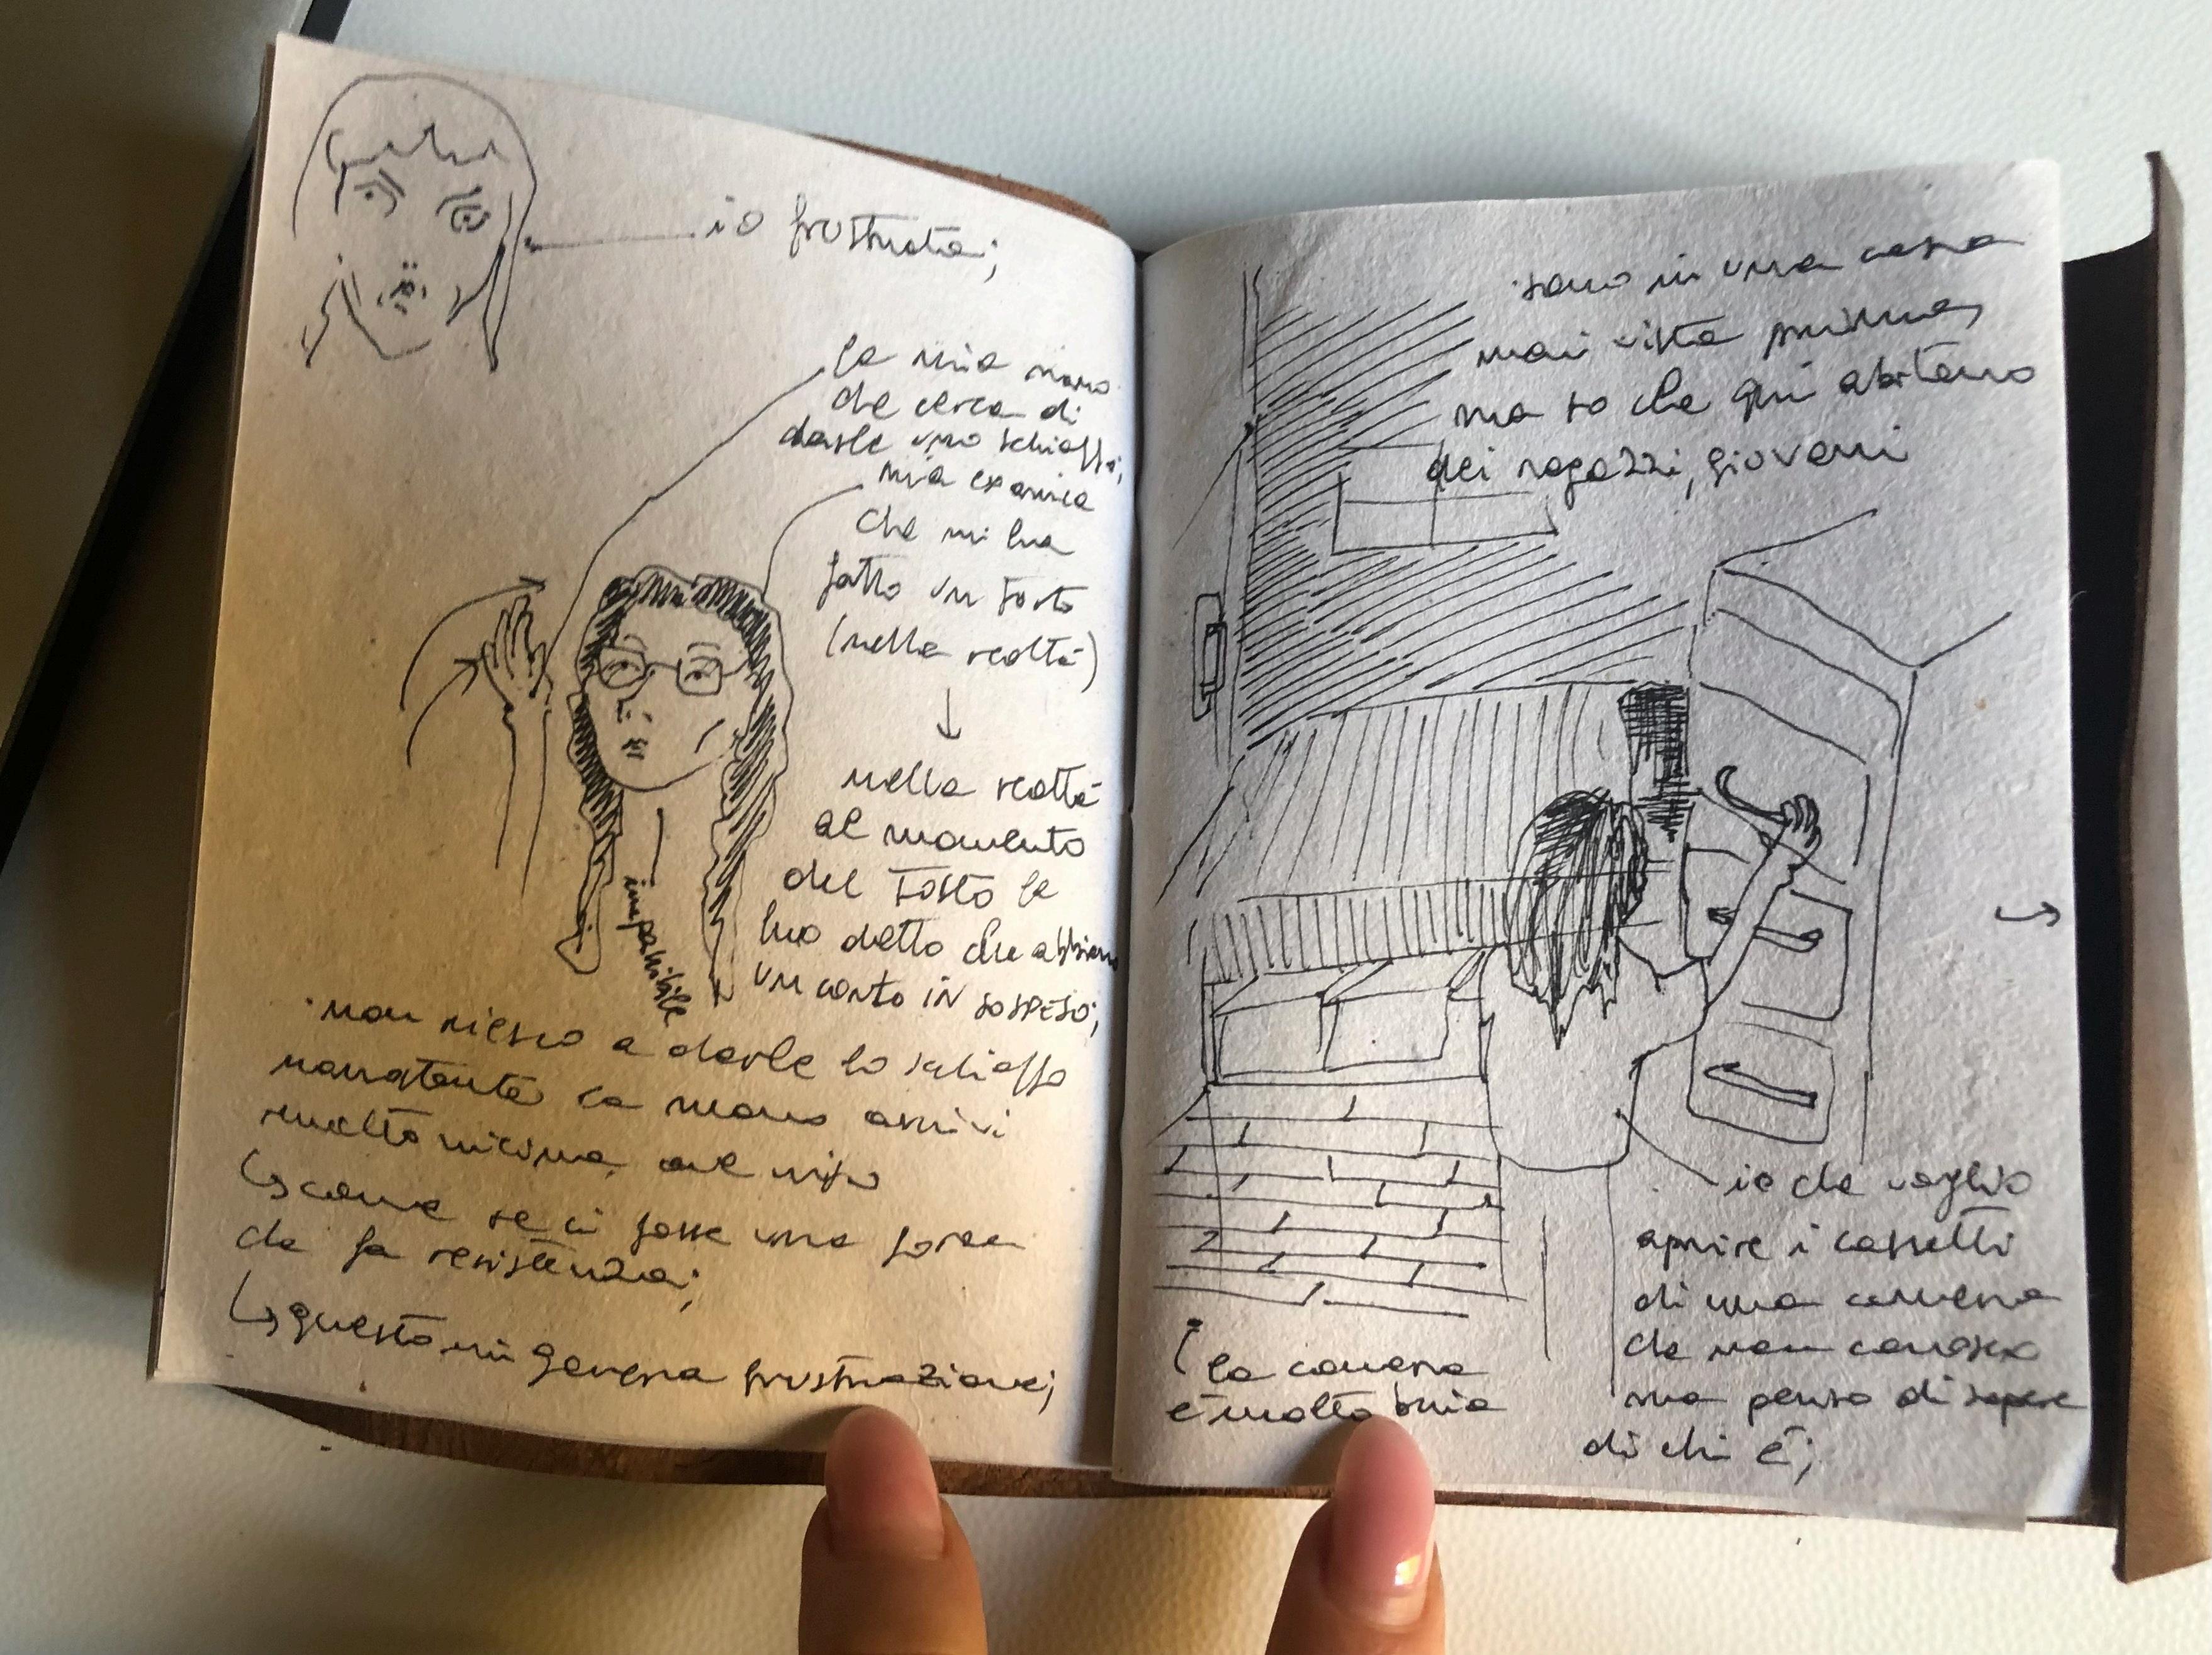 io frustrata;
la mia mano
che cerca di
darle uno schiaffo;
mia ex amica
che mi ha
fatto un torto
(nella realtà)
↓
nella realtà
al momento
del torto le
ho detto che abbiamo
un conto IN SOSPESO;
impassibile
• non riesco a darle lo schiaffo
nonostante la mano arrivi
molto vicino al viso
↳ come se ci fosse una forza
che fa resistenza;
↳ questo mi genera frustrazione;
• sono in una casa
mai vista prima,
ma so che qui abitano
dei ragazzi, giovani
→
io che voglio
aprire i cassetti
di una camera
che non conosco
ma penso di sapere
di chi è;
la camera
è molto buia